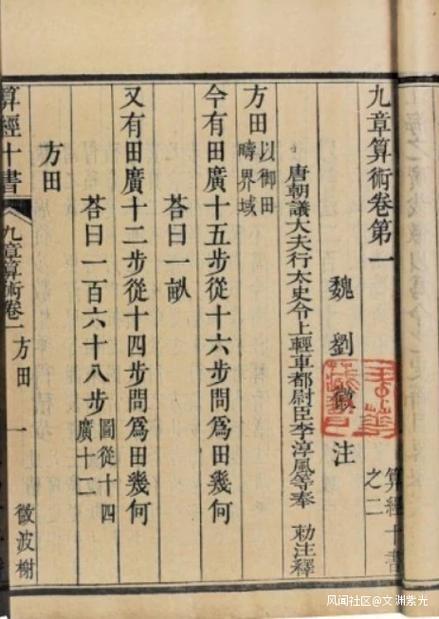 九章算術卷第一
算經十書之二
魏 劉徽 注
唐朝議大夫行太史令上輕車都尉臣李淳風等奉 敕注釋
方田以御田疇界域
今有田廣十五步從十六步問爲田幾何
荅曰一畝
又有田廣十二步從十四步問爲田幾何
荅曰一百六十八步圖從十四廣十二
方田
算經十書
九章算術卷一
方田
一
微波榭
风闻社区@文渊紫光